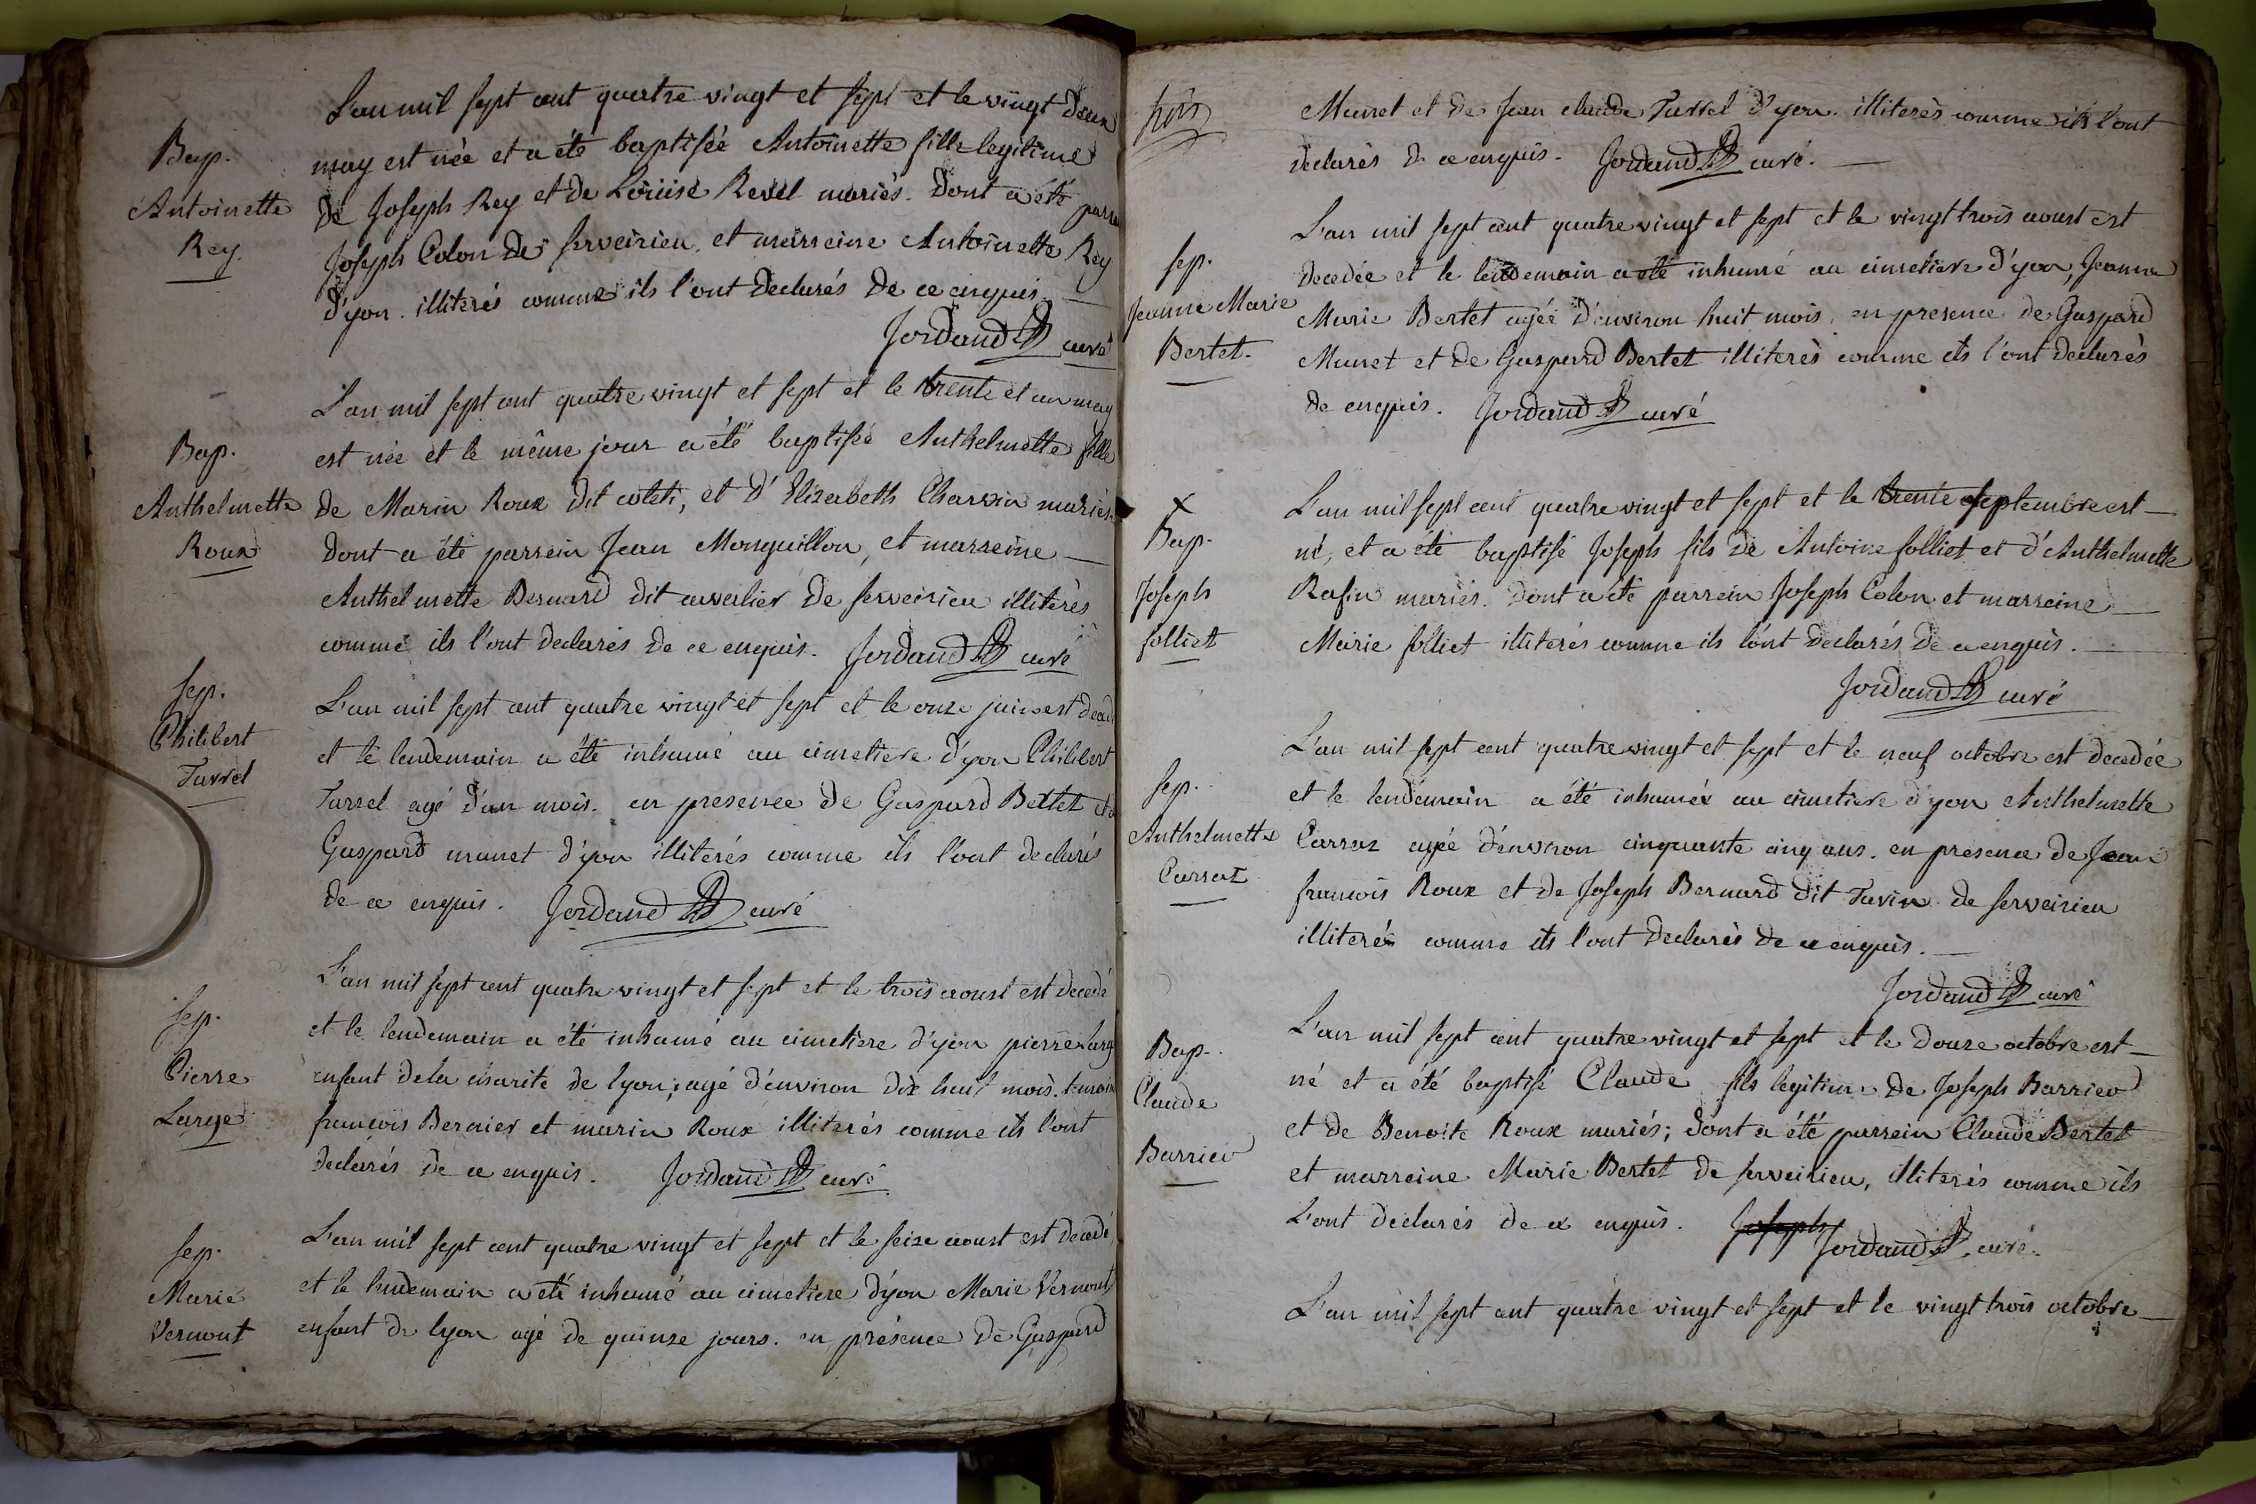 Bap.
Antoinette
Rey.
L'an mil sept cent quatre vingt et sept et le vingt deux
may est née et a été baptisée Antoinette fille legitime
de Joseph Rey et de Loüise Revel mariés. Dont a été parre
Joseph Colon de serveirieu, et marreine Antoinette Rey
d'yon. illiterés comme ils l'ont declarés de ce enquis.
Jordand curé
Bap.
Anthelmette
Roux
L'an mil sept cent quatre vingt et sept et le trente et un may
est née et le même jour a été baptisée Anthelmette fille
de Marin Roux dit coleti, et d'Elizabeth Charvin mariés.
Dont a été parrein Jean Monguillon, et marreine
Anthelmette Bernard dit cavalier de serveirieu illiterés
comme ils l'ont declarés de ce enquis. Jordand curé
sep.
Philibert
Turrel
L'an mil sept cent quatre vingt et sept et le onze juin est decedé
et le lendemain a été inhumé au cimetiere d'yon Philibert
Turrel agé d'un mois. en presence de Gaspard Bertet et de
Gaspard munet d'yon illiterés comme ils l'ont declarés
de ce enquis. Jordand curé
sep.
Pierre
Large
L'an mil sept cent quatre vingt et sept et le trois aoust est decedé
et le lendemain a été inhumé au cimetiere d'yon pierre larg
enfant de la charité de lyon; agé d'environ dix huit mois. temoin
francois Bernier et marin Roux illiterés comme ils l'ont
declarés de ce enquis. Jordand curé
sep.
Marie
Vermont
L'an mil sept cent quatre vingt et sept et le seize aoust est decedé
et le lendemain a été inhumé au cimetiere d'yon Marie Vermont,
enfant de lyon agé de quinze jours. en présence de Gaspard
trois
Munet et de Jean claude Turrel d'yon. illiterés comme ils l'ont
declarés de ce enquis. Jordand curé.
sep.
Jeanne Marie
Bertet.
L'an mil sept cent quatre vingt et sept et le vingt trois aoust est
decedée et le lendemain a été inhumé au cimetiere d'yon, Jeanne
Marie Bertet agée d'environ huit mois, en presence de Gaspard
Munet et de Gaspard Bertet illiterés comme ils l'ont declarés
de enquis. Jordand curé
x
Bap.
Joseph
folliet
L'an mil sept cent quatre vingt et sept et le trente septembre est
né, et a été baptisé Joseph fils de Antoine folliet et d'Anthelmette
Rafin mariés. Dont a été parrein Joseph Colon et marreine
Marie folliet illiterés comme ils l'ont declarés de ce enquis.
Jordand curé
sep.
Anthelmette
Carraz
L'an mil sept cent quatre vingt et sept et le neuf octobre est decedée
et le lendemain a été inhumée au cimetiere d'yon Anthelmette
Carraz agée d'environ cinquante cinq ans. en presence de Jean
francois Roux et de Joseph Bernard dit Tavin de serveirieu
illiterés comme ils l'ont declarés de ce enquis.
Jordand curé
Bap.
Claude
Barrieu
L'an mil sept cent quatre vingt et sept et le douze octobre est
né et a été baptisé Claude fils legitime de Joseph Barrieu
et de Benoite Roux mariés; dont a été parrein Claude Bertet
et marreine Marie Bertet de serveirieu, illiterés comme ils
L'ont declarés de ce enquis. Joseph Jordand curé.
L'an mil sept cent quatre vingt et sept et le vingt trois octobre